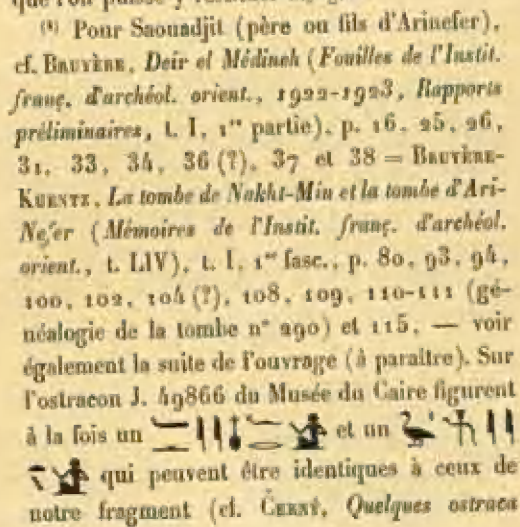 (⁴) Pour Saouadjit (père ou fils d'Arinefer),
cf. BRUYÈRE, Deir el Médineh (Fouilles de l'Instit.
franç. d'archéol. orient., 1922-1923, Rapports
préliminaires, t. I, 1ʳᵉ partie), p. 16, 25, 26,
31, 33, 34, 36 (?), 37 et 38 = BRUYÈRE-
KUENTZ, La tombe de Nakht-Min et la tombe d'Ari-
Nefer (Mémoires de l'Instit. franç. d'archéol.
orient., t. LIV), t. I, 1ᵉʳ fasc., p. 80, 93, 94,
100, 102, 104 (?), 108, 109, 110-111 (gé-
néalogie de la tombe n° 290) et 115, — voir
également la suite de l'ouvrage (à paraître). Sur
l'ostracon J. 49866 du Musée du Caire figurent
à la fois un et un
qui peuvent être identiques à ceux de
notre fragment (cf. ČERNÝ, Quelques ostraca